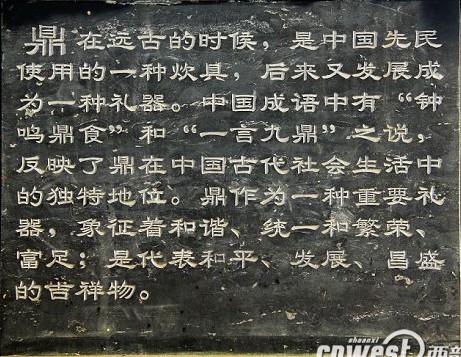 鼎在远古的时候，是中国先民
使用的一种炊具，后来又发展成
为一种礼器。中国成语中有“钟
鸣鼎食”和“一言九鼎”之说，
反映了鼎在中国古代社会生活中
的独特地位。鼎作为一种重要礼
器，象征着和谐、统一和繁荣、
富足；是代表和平、发展、昌盛
的吉祥物。
shaanxi
cnwest 西部